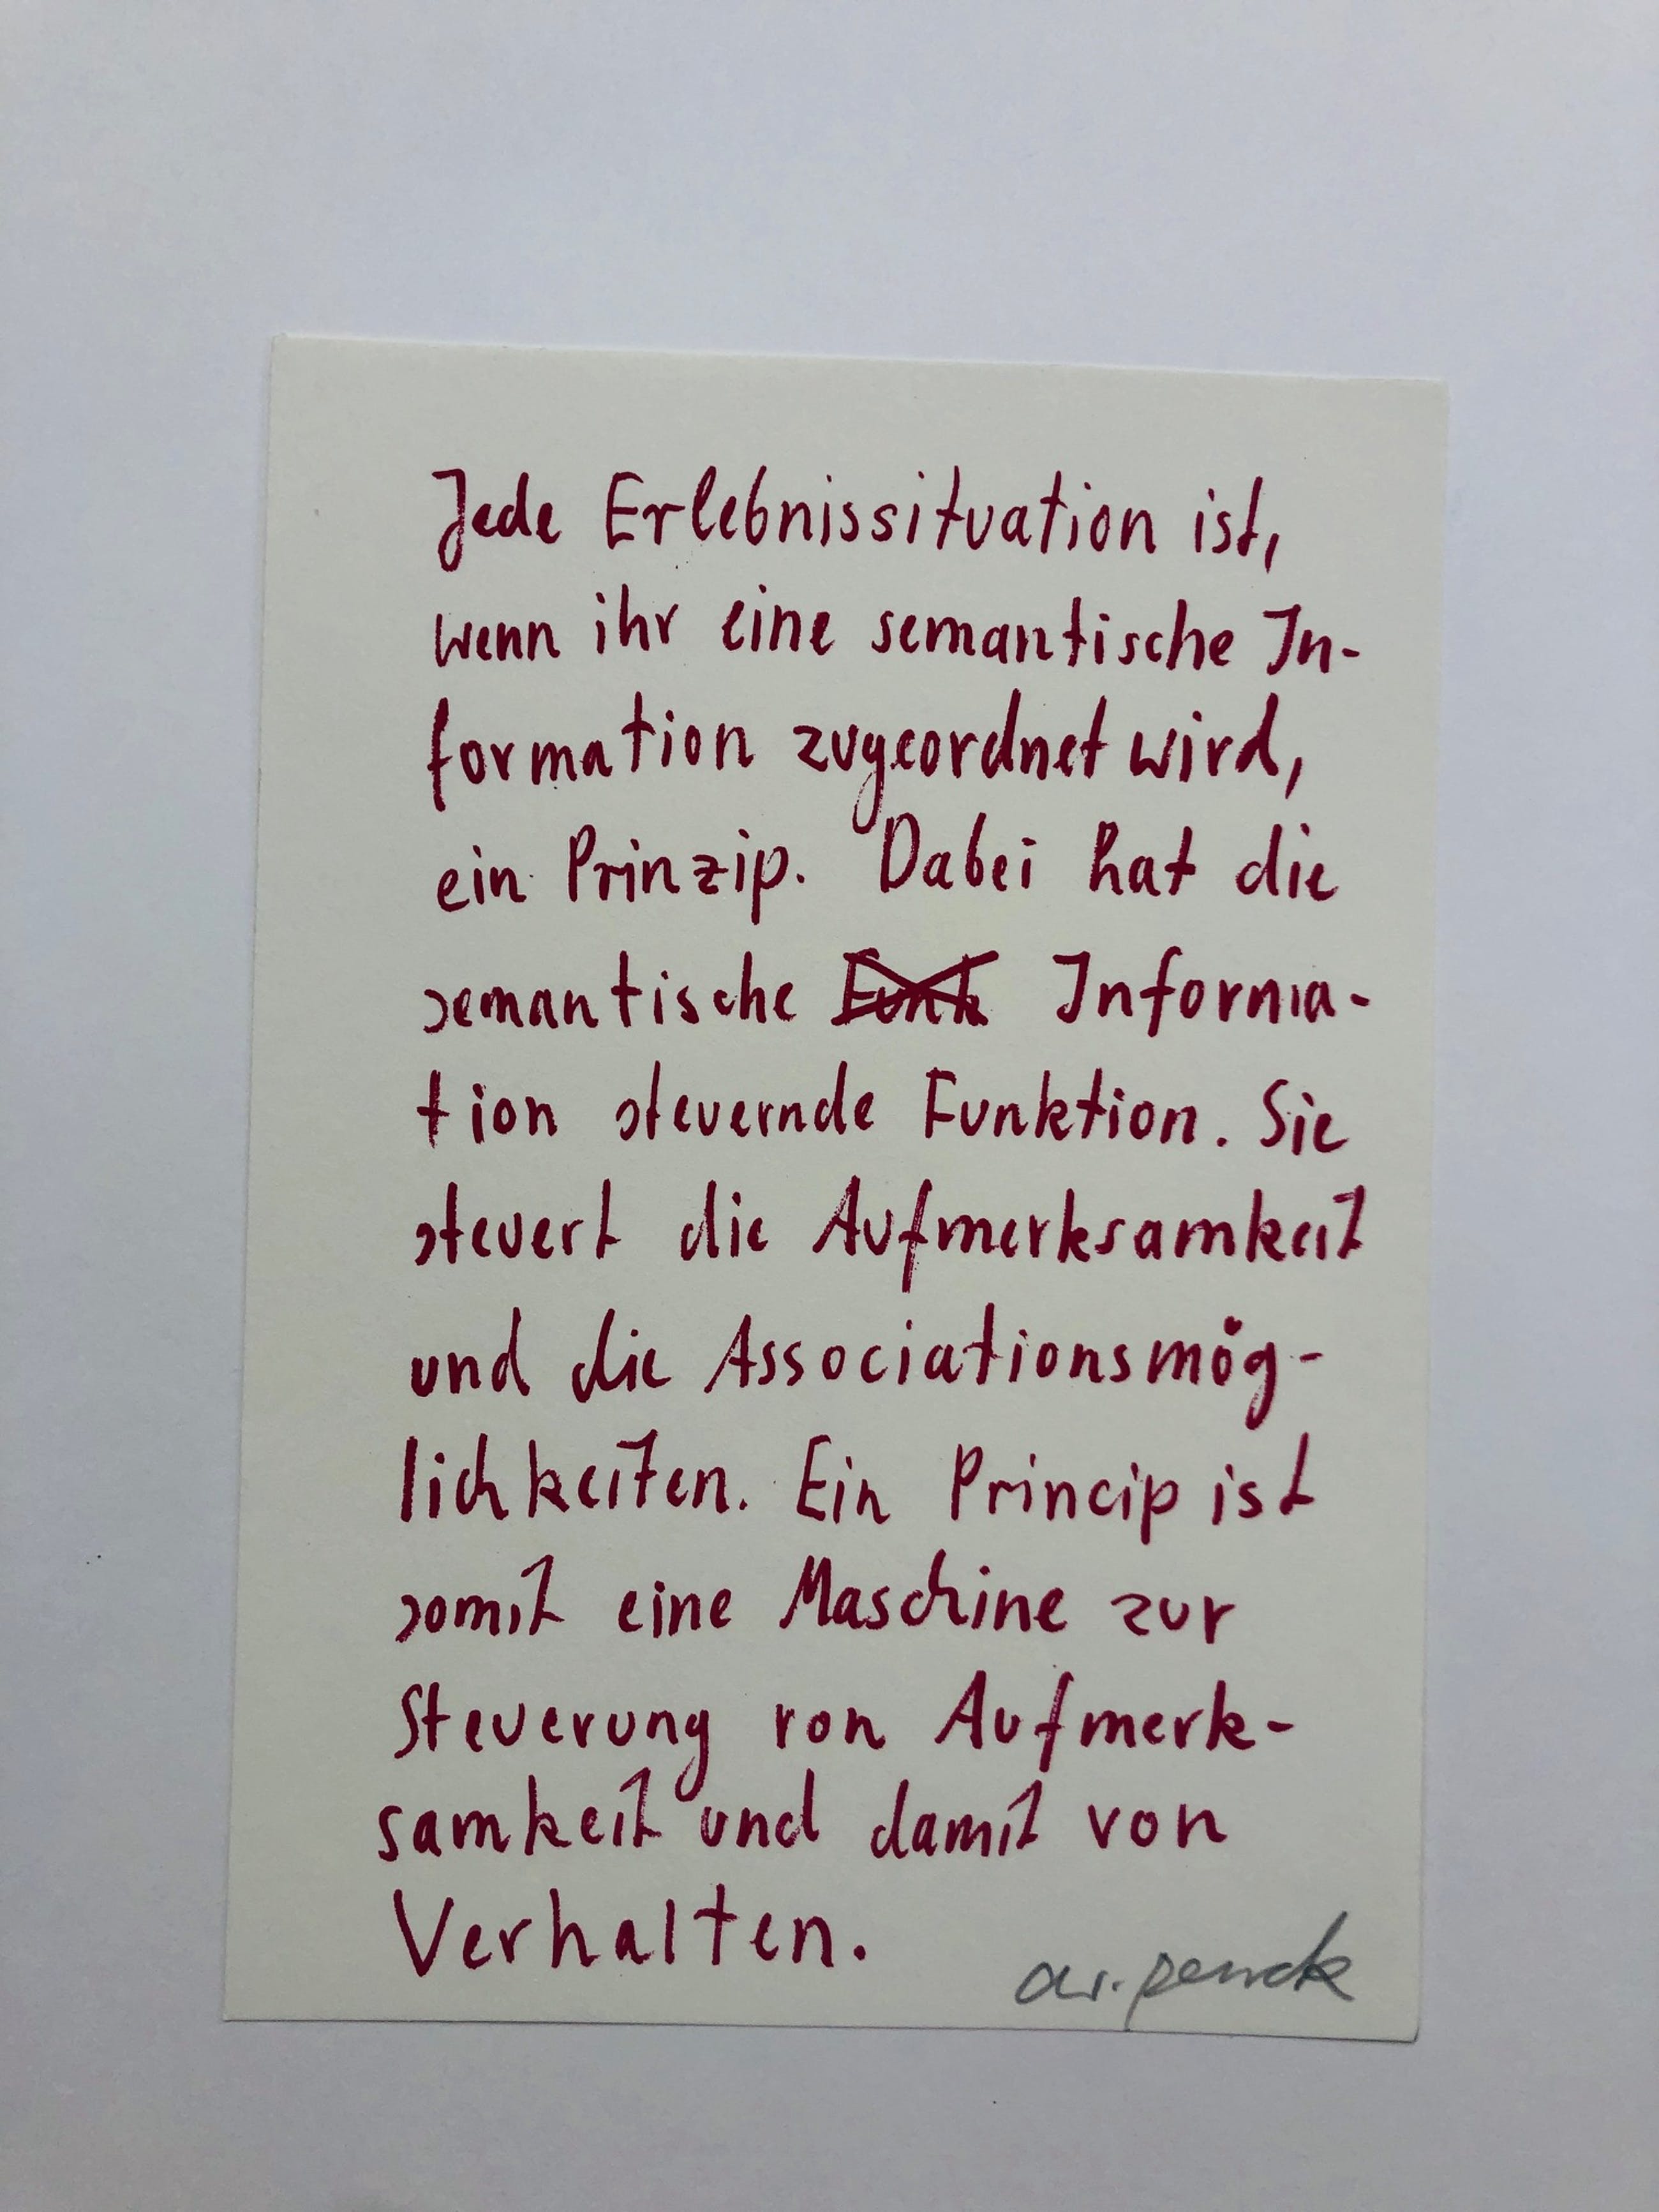 Jede Erlebnissituation ist,
wenn ihr eine semantische In-
formation zugeordnet wird,
ein Prinzip. Dabei hat die
semantische Funk Informa-
tion steuernde Funktion. Sie
steuert die Aufmerksamkeit
und die Associationsmög-
lichkeiten. Ein Princip ist
somit eine Maschine zur
Steuerung von Aufmerk-
samkeit und damit von
Verhalten.
a.r. penck